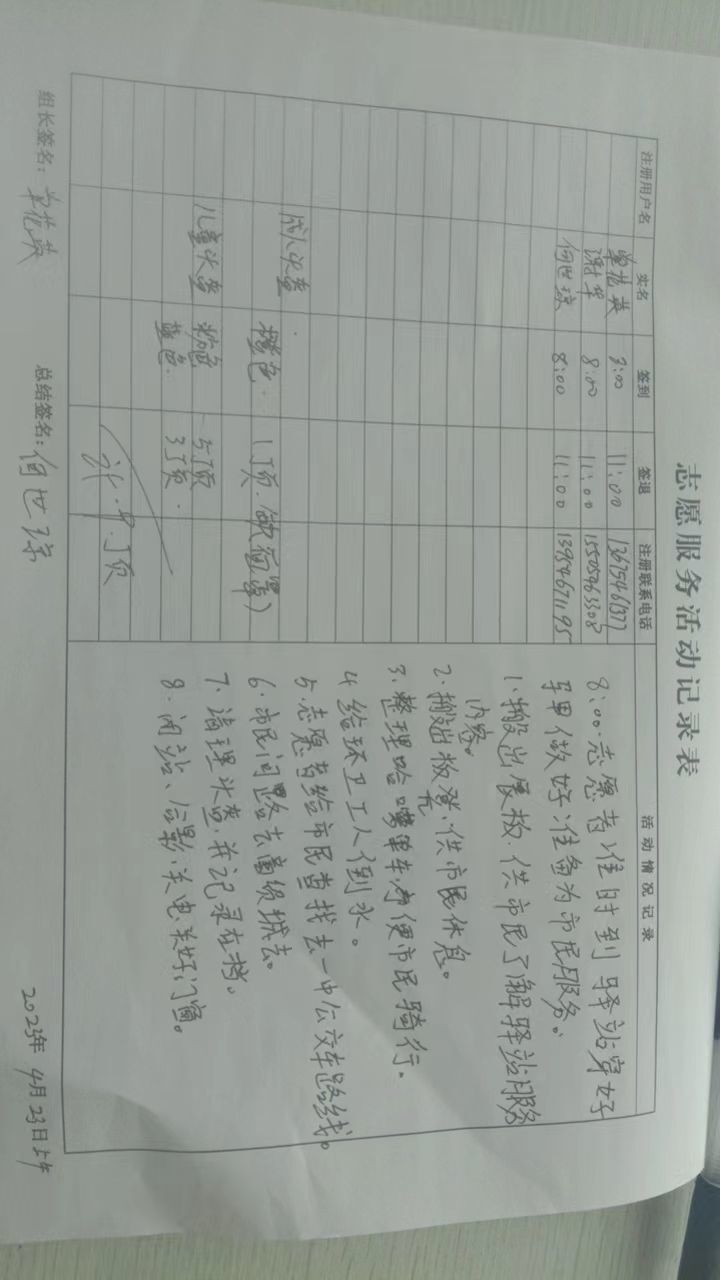 志愿服务活动记录表
注册用户名 实名 签到 签退 注册联系电话 活动情况记录
英 8:00 11:00 13675461377
谢华 8:00 11:00 15505463308
何世琼 8:00 11:00 13954671195
成人头盔
橙色 1顶
儿童头盔 粉色 5顶
蓝色 3顶
计:9顶
8:00志愿者准时到驿站穿好
马甲做好准备为市民服务。
1、搬出展板、供市民了解驿站服务
内容。
2、搬出板凳、供市民休息。
3、整理哈啰单车方便市民骑行。
4、给环卫工人倒水。
5、志愿者给市民查找去一中公交车路线。
6、市民问路去
7、清理头盔,并记录在档。
8、闭站、合影、关电关好门窗。
组长签名: 英 总结签名:何世琼 2023年4月23日上午